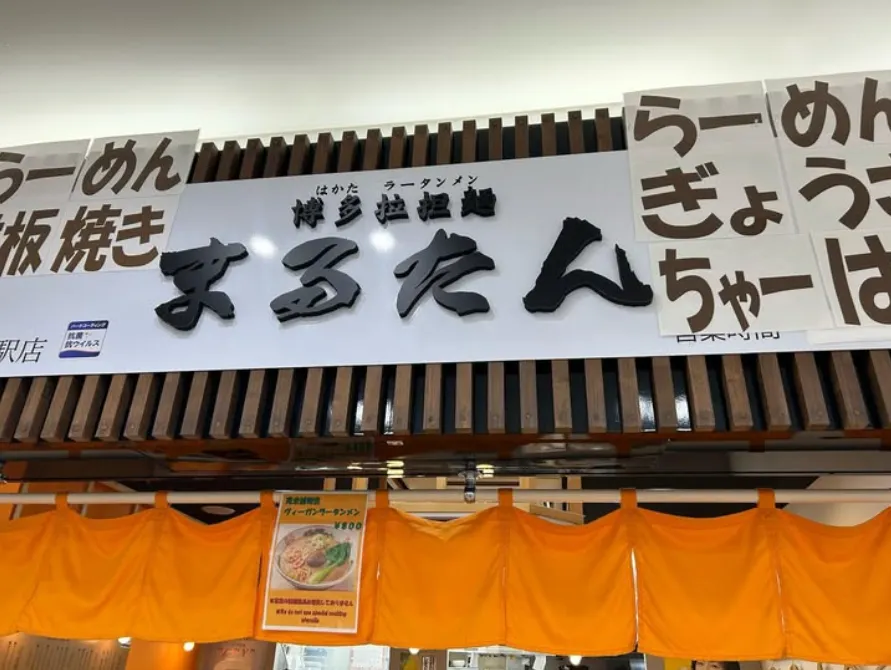 らーめん
板焼き
はかた ラータンメン
博多拉担麺
まるたん
らーめん
ぎょう
ちゃーは
駅店
ハードコーティング
抗菌
抗ウイルス
営業時間
ヴィーガンラータンメン
¥800